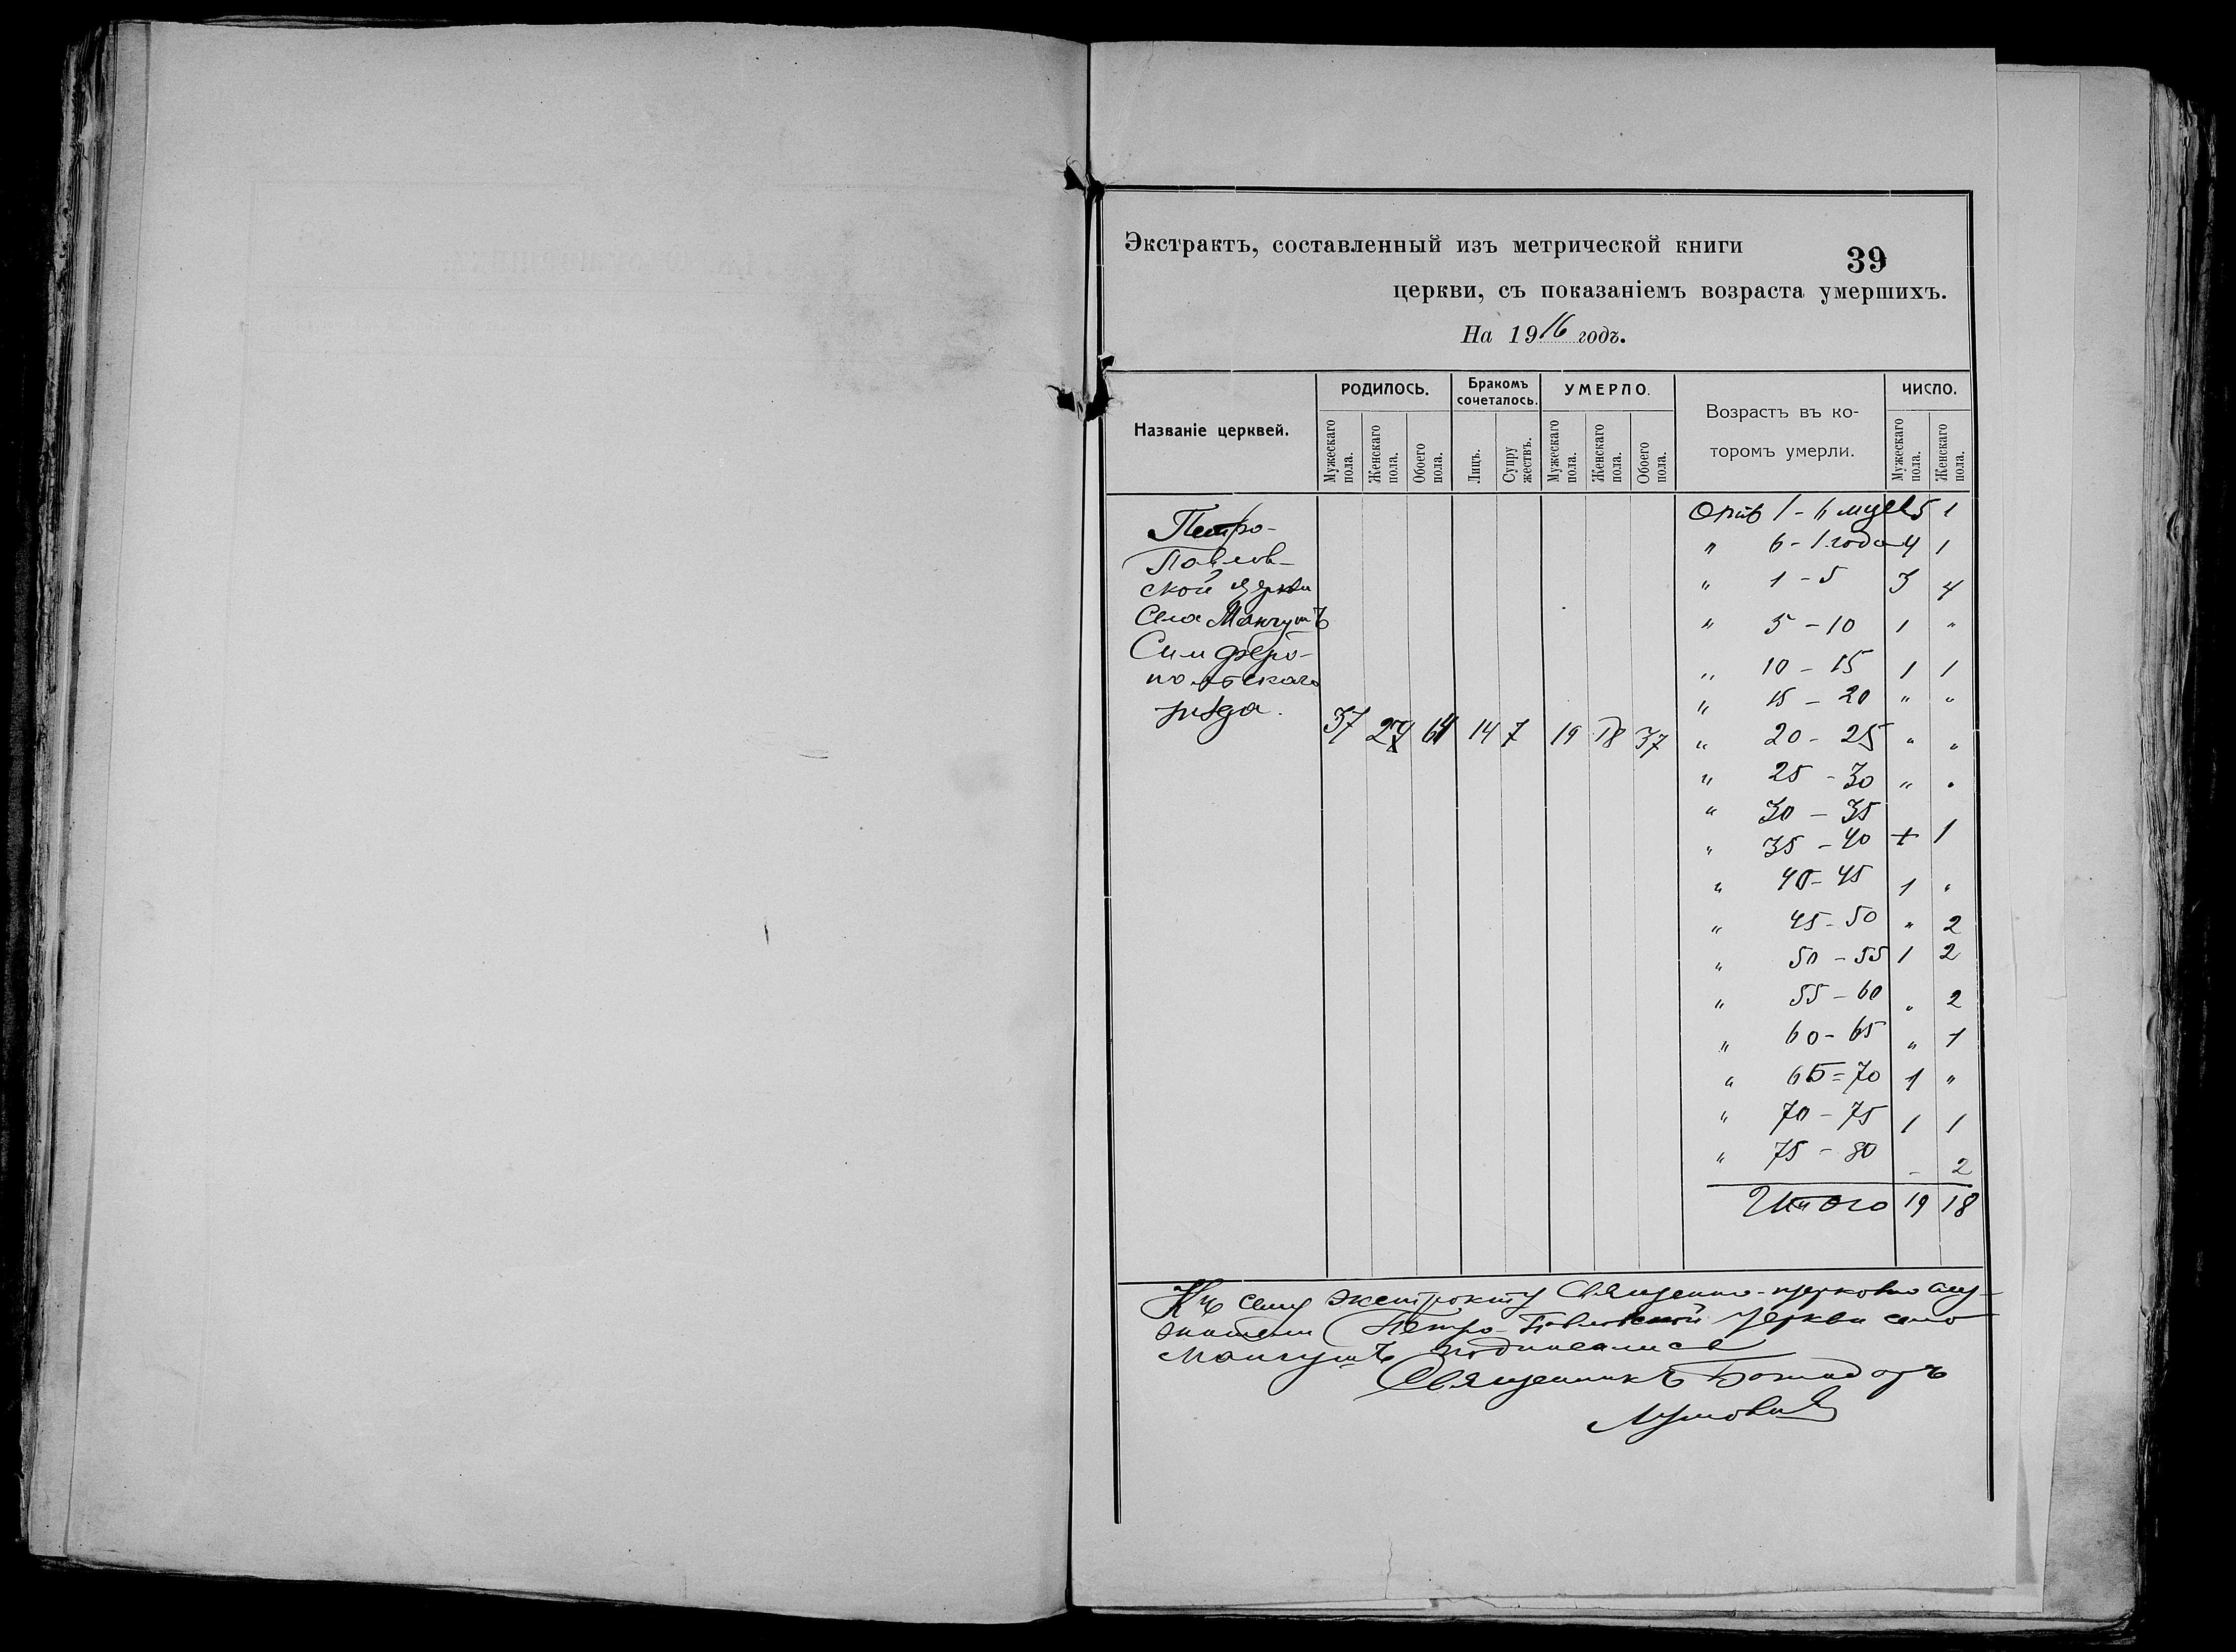 Экстрактъ, составленный изъ метрической книги
39
церкви, съ показаніемъ возраста умершихъ.
На 1916 годъ.
Названіе церквей.
РОДИЛОСЬ.
Бракомъ сочеталось.
УМЕРЛО.
Возрастъ въ которомъ умерли.
ЧИСЛО.
Мужескаго пола.
Женскаго пола.
Обоего пола.
Лицъ.
Супружествъ.
Мужескаго пола.
Женскаго пола.
Обоего пола.
Мужескаго пола.
Женскаго пола.
Петро-
Павлов-
ской церкви
Села Мангушъ
Симферо-
польскаго
уѣзда.
37 27 64 14 7 19 18 37
Отъ 1 - 6 мцевъ 5 1
" 6 - 1 года 4 1
" 1 - 5 3 4
" 5 - 10 1 "
" 10 - 15 1 1
" 15 - 20 " "
" 20 - 25 " "
" 25 - 30 " "
" 30 - 35
" 35 - 40 + 1
" 40 - 45 1 "
" 45 - 50 " 2
" 50 - 55 1 2
" 55 - 60 " 2
" 60 - 65 " 1
" 65 = 70 1 "
" 70 - 75 1 1
" 75 - 80 - 2
Итого 19 18
Къ сему экстракту Священно-церковнослу-
жители Петро-Павловской церкви села
Мангушъ подписались
Священникъ